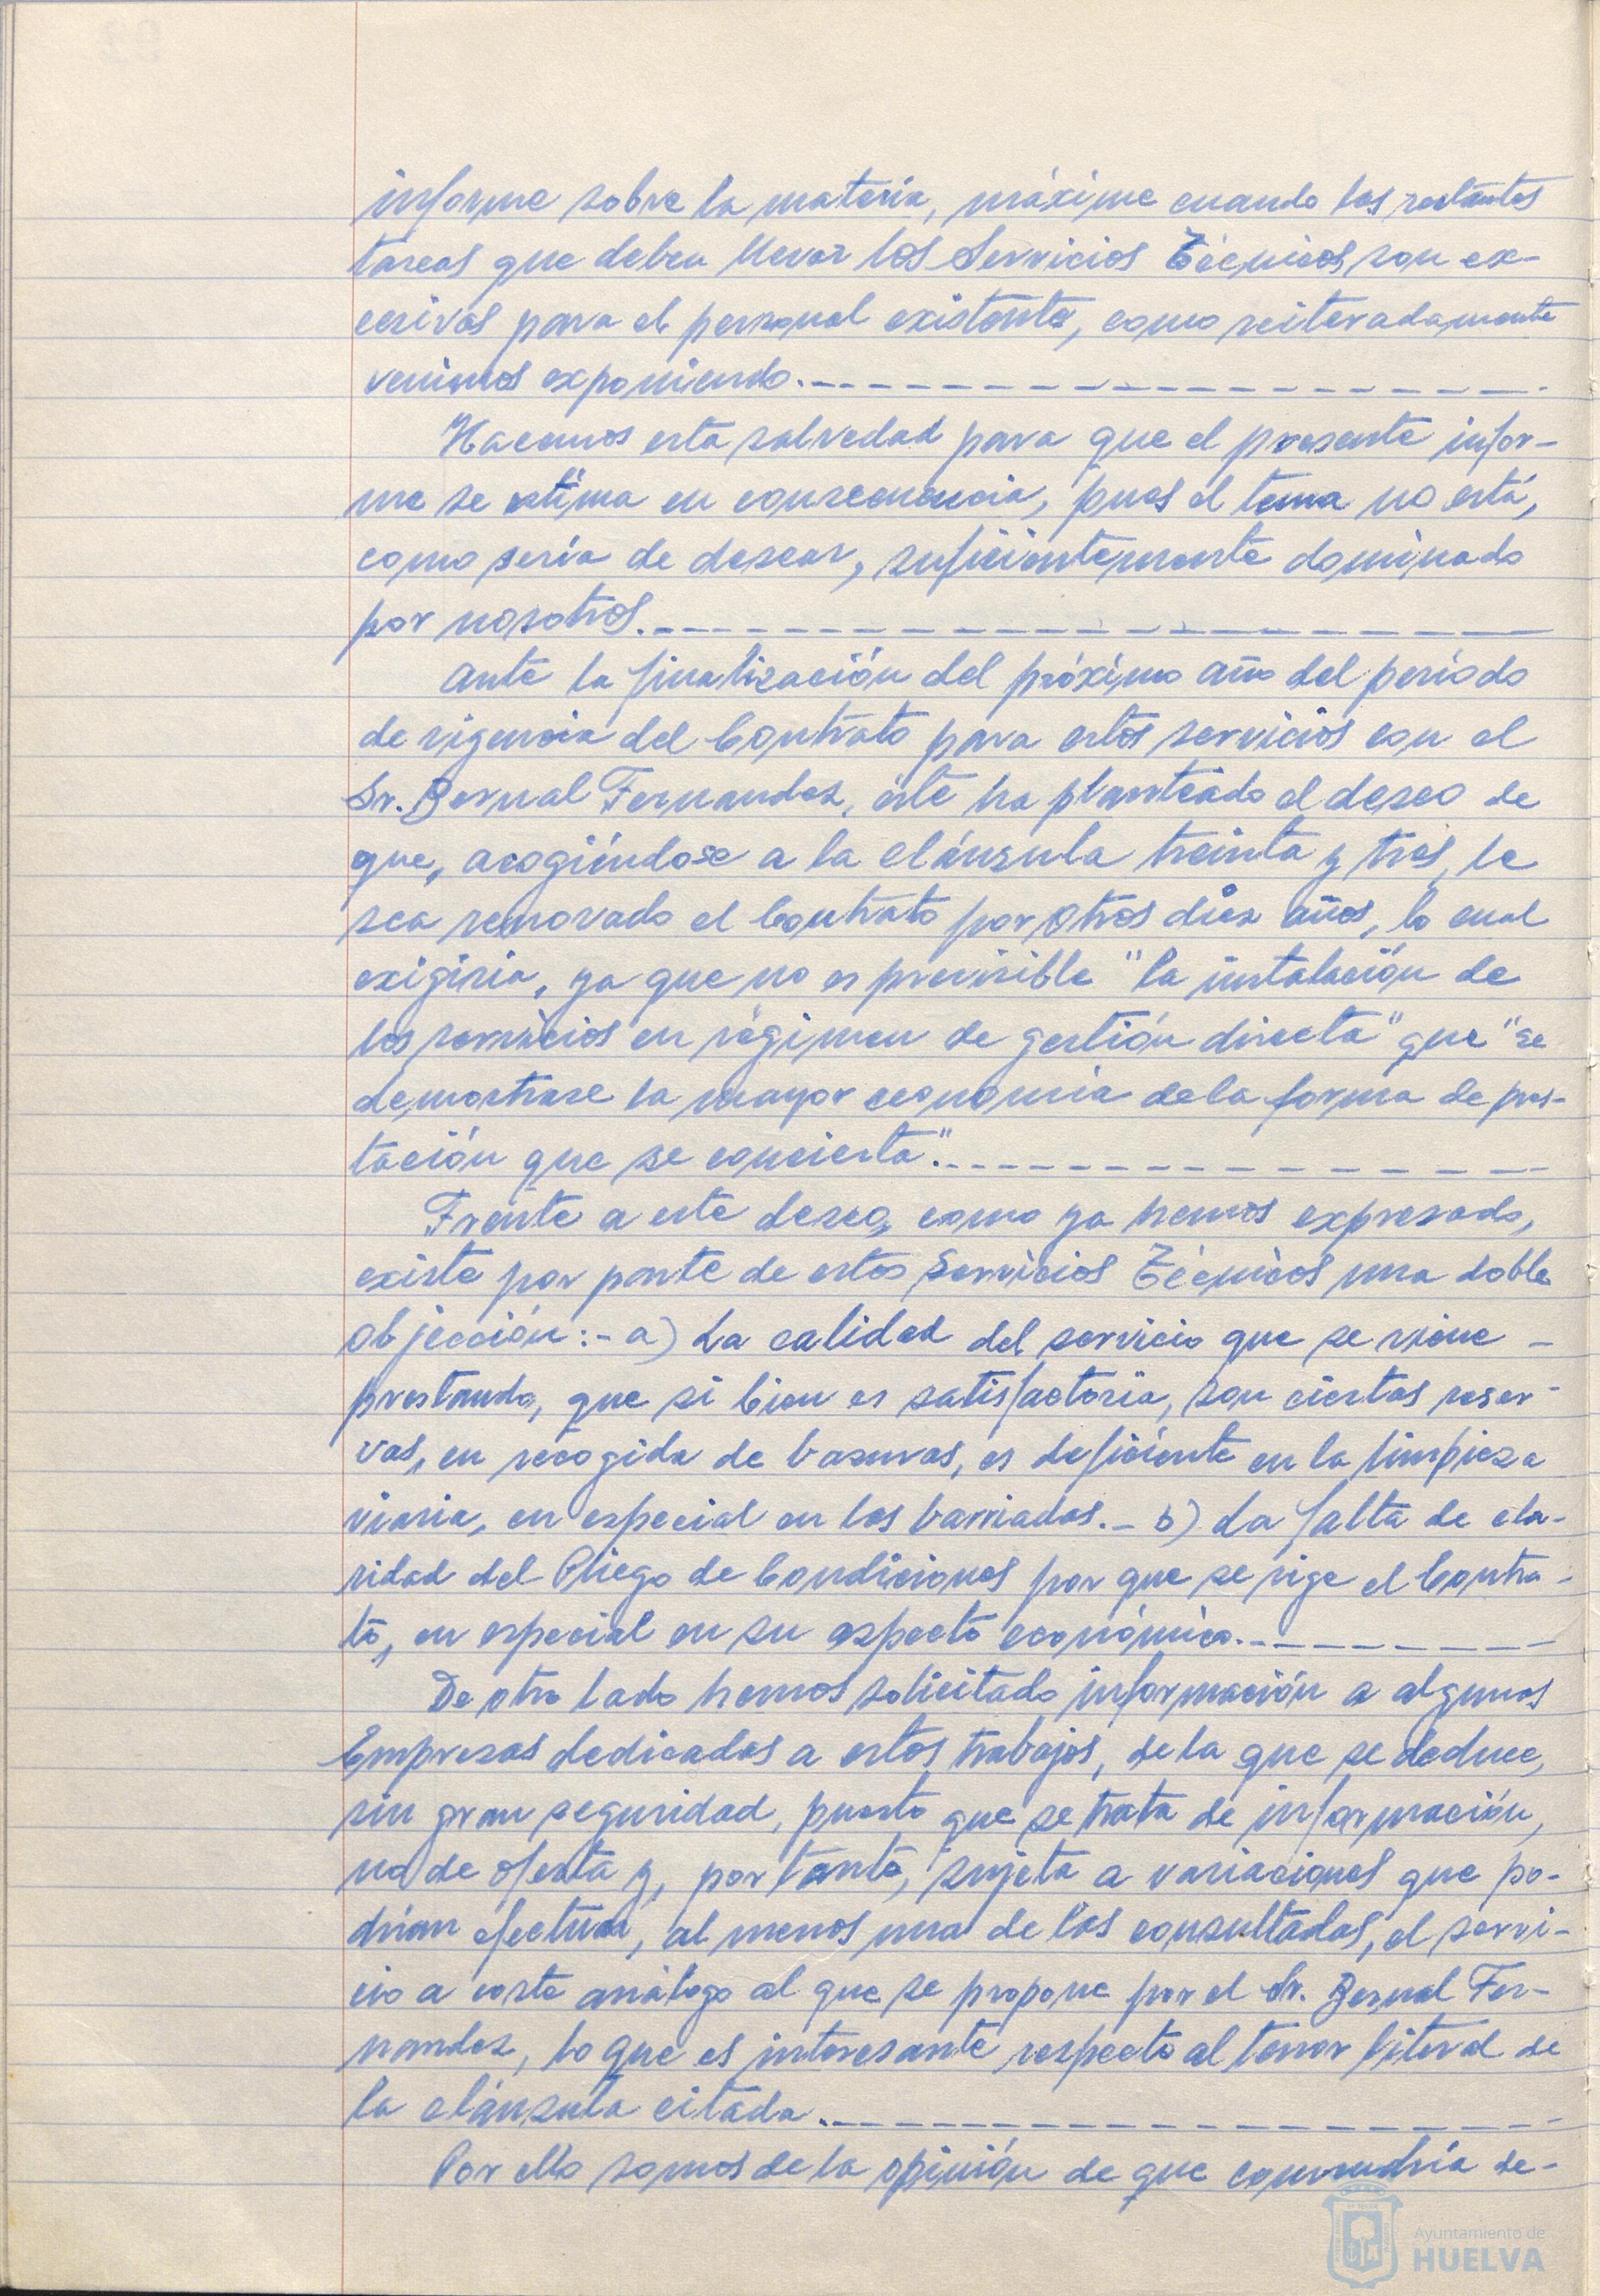 informe sobre la materia, máxime cuando las restantes
tareas que deben llevar los Servicios Técnicos son ex-
cesivas para el personal existente, como reiteradamente
venimos exponiendo.
Hacemos esta salvedad para que el presente infor-
me se estima en consecuencia, pues el tema no está,
como sería de desear, suficientemente dominado
por nosotros.
Ante la finalización del próximo año del período
de vigencia del Contrato para estos servicios con el
Sr. Bernal Fernandez, éste ha planteado el deseo de
que, acogiéndose a la cláusula treinta y tres, le
sea renovado el Contrato por otros diez años, lo cual
exigiría, ya que no es previsible "la instalación de
los servicios en régimen de gestión directa" que "se
demostrase la mayor economía de la forma de pres-
tación que se concierta".
Frente a este deseo, como ya hemos expresado,
existe por parte de estos Servicios Técnicos una doble
objección:- a) La calidad del servicio que se viene -
prestando, que si bien es satisfactoria, con ciertas reser-
vas, en recogida de basuras, es deficiente en la limpieza
viaria, en especial en las barriadas.- b) La falta de cla-
ridad del Pliego de Condiciones por que se rige el Contra-
to, en especial en su aspecto económico.
De otro lado hemos solicitado información a algunas
Empresas dedicadas a estos trabajos, de la que se deduce,
sin gran seguridad, puesto que se trata de información,
no de oferta y, por tanto, sujeta a variaciones que po-
drían efectuar, al menos una de las consultadas, el servi-
cio a coste análogo al que se propone por el Sr. Bernal Fer-
nandez, lo que es interesante respecto al tenor literal de
la cláusula citada.
Por ello somos de la opinión de que convendría de-
Ayuntamiento de
HUELVA